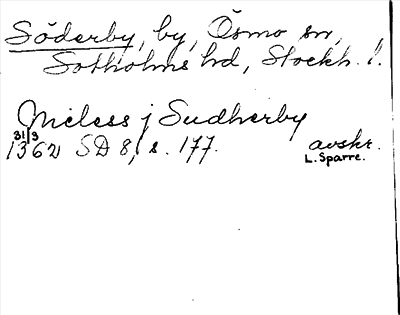 Söderby, by, Ösmo sn,
Sotholms hd, Stockh. l.
Nicless j Sudherby
31/3
1362 SD 8, s. 177. avskr.
L. Sparre.